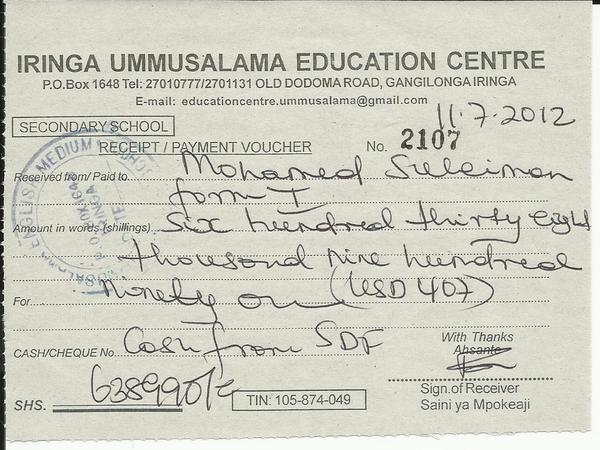 IRINGA UMMUSALAMA EDUCATION CENTRE
P.O.Box 1648 Tel: 27010777/2701131 OLD DODOMA ROAD, GANGILONGA IRINGA
E-mail: educationcentre.ummusalama@gmail.com
11.7.2012
SECONDARY SCHOOL
RECEIPT / PAYMENT VOUCHER No. 2107
Received from/ Paid to Mohamed Suleiman
form I
Amount in words (shillings) Six hundred thirty eight
thousand nine hundred
For ninety one (USD 407)
CASH/CHEQUE No. Cash from SDF
With Thanks
Ahsante
SHS. 638990/=
TIN: 105-874-049
Sign.of Receiver
Saini ya Mpokeaji